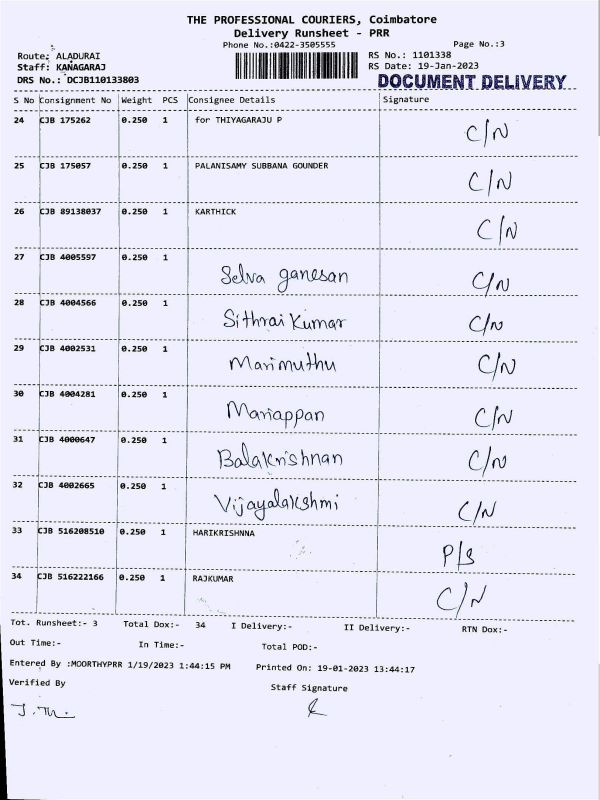 THE PROFESSIONAL COURIERS, Coimbatore
Delivery Runsheet - PRR
Phone No.:0422-3505555 Page No.:3
Route: ALADURAI RS No.: 1101338
Staff: KANAGARAJ RS Date: 19-Jan-2023
DRS No.: DCJB110133803 DOCUMENT DELIVERY
S No Consignment No Weight PCS Consignee Details Signature
24 CJB 175262 0.250 1 for THIYAGARAJU P C/N
25 CJB 175057 0.250 1 PALANISAMY SUBBANA GOUNDER C/N
26 CJB 89138037 0.250 1 KARTHICK C/N
27 CJB 4005597 0.250 1 Selva ganesan C/N
28 CJB 4004566 0.250 1 Sithrai Kumar C/N
29 CJB 4002531 0.250 1 Marimuthu C/N
30 CJB 4004281 0.250 1 Mariappan C/N
31 CJB 4000647 0.250 1 Balakrishnan C/N
32 CJB 4002665 0.250 1 Vijayalakshmi C/N
33 CJB 516208510 0.250 1 HARIKRISHNNA P/S
34 CJB 516222166 0.250 1 RAJKUMAR C/N
Tot. Runsheet:- 3 Total Dox:- 34 I Delivery:- II Delivery:- RTN Dox:-
Out Time:- In Time:- Total POD:-
Entered By :MOORTHYPRR 1/19/2023 1:44:15 PM Printed On: 19-01-2023 13:44:17
Verified By Staff Signature